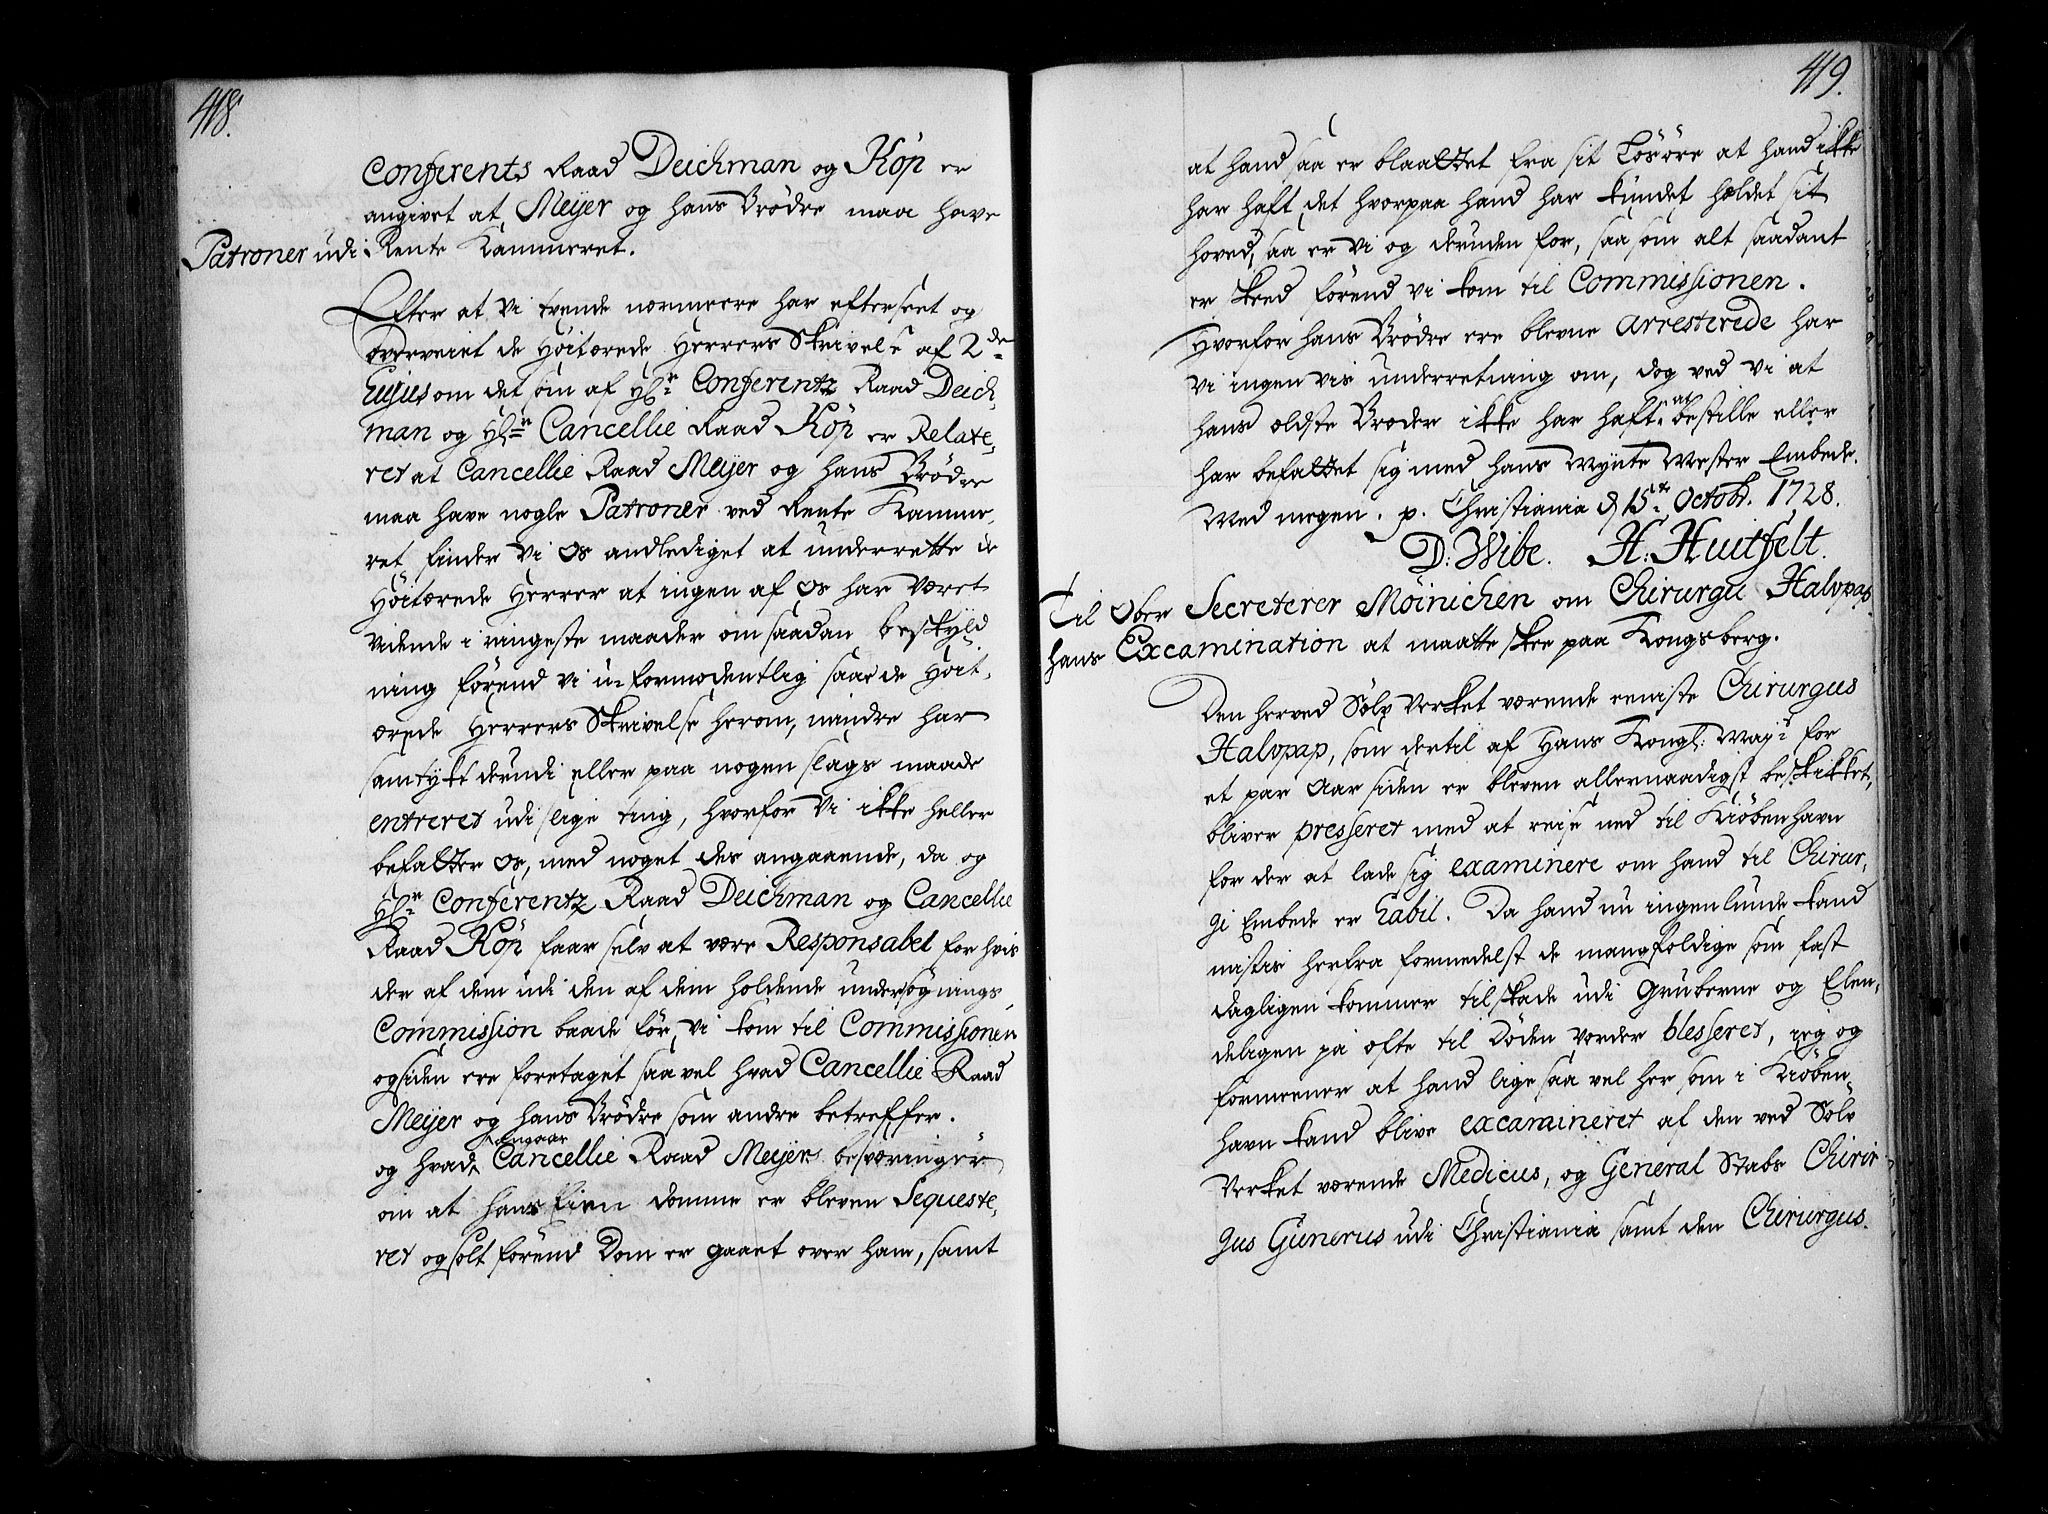 418.
Conferents Raad Deichman og Röp er
angivet at Meyer og hans Brödre maa have
Patroner udi Rente Kammeret.
Efter at vi tvende nermeere har efterseet og
overveiet de Höitærede Herrers Skrivelse af 2de
hujus om det som af Hr. Conferentz Raad Deich,
man og Hr. Cancellie Raad Röp er Relate,
ret at Cancellie Raad Meyer og hans Brödre
maa have nogle Patroner ved Rente Kamme,
ret, finder vi os andlediget at underrette de
Höitærede Herrer at ingen af os har veret
vidende i ringeste maader om saadan beskyld
ning förend vi u-formodentlig saae de Höit,
ærede Herrers Skrivelse herom, mindre har
samtykt derudi eller paa nogen slags maade
entreret udi slige ting, hvorfor vi ikke heller
befatter os, med noget des angaaende, da og
Hr. Conferentz Raad Deichman og Cancellie
Raad Röp faar selv at være Responsabel for hvis
der af dem udi den af dem holdende undersögnings
Commission baade för vi kom til Commissionen
og siden ere foretaget saavel hvad Cancellie Raad
Meyer og hans Brödre som andre betreffer.
og hvad angaar Cancellie Raad Meyers besværinger
om at hans Eiendomme er bleven Sequeste,
ret og solt förend Dom er gaaet over ham, samt
419.
at hand saa er blaattet fra sit Lösöre at hand ikke
har haft det hvorpaa hand har kundet holdet sit
hoved, saa er vi og deruden for, saasom alt saadant
er skeed förend vi kom til Commissionen.
Hvorfor hans Brödre ere blevne arresterede har
vi ingen vis underretning om, dog ved vi at
hans ældste Broder ikke har haft at bestille eller
har befattet sig med hans Mynte Mester Embede.
Med megen. p. Christiania d 15te Octobr. 1728.
D: Wibe. H: Huitfelt.
Til Ober Secreterer Möinichen om Chirurgii Halvpap
hans Excamination at maatte skee paa Kongsberg.
Den herved Sölv Verket værende eeniste Chirurgus
Halvpap, som dertil af Hans Kongl: Mayt for
et par Aar siden er bleven allernaadigst beskikket,
bliver presseret med at reise ned til Kiöbenhavn
for der at lade sig examinere om hand til Chirur,
gi Embede er habil. Da hand nu ingenlunde kand
mistis herfra formedelst de mangfoldige som fast
dagligen kommer til skade udi Gruberne og Elen,
deligen ja ofte til Döden vorder blesseret, ieg og
formeener at hand lige saa vel her som i Kiöben
havn kand blive excamineret af den ved Sölv
Verket værende Medicus, og General Stabs Chirir
gus Gunerus udi Christiania samt den Chirurgus.